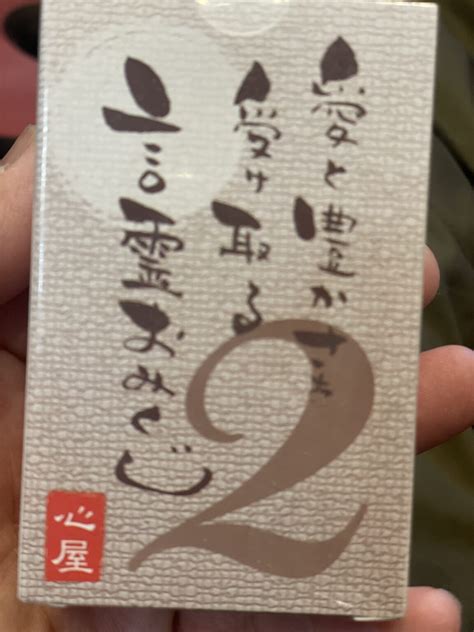 愛と豊かさを
受け取る
言霊おみくじ
2
心屋